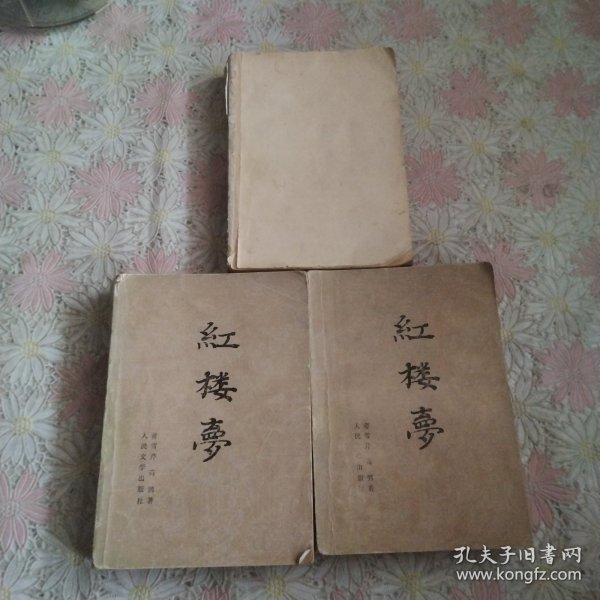 紅楼夢
曹雪芹 高鹗著
人民文学出版社
紅楼夢
曹雪芹 高鹗著
人民
出版
孔夫子旧书网
www.kongfz.com